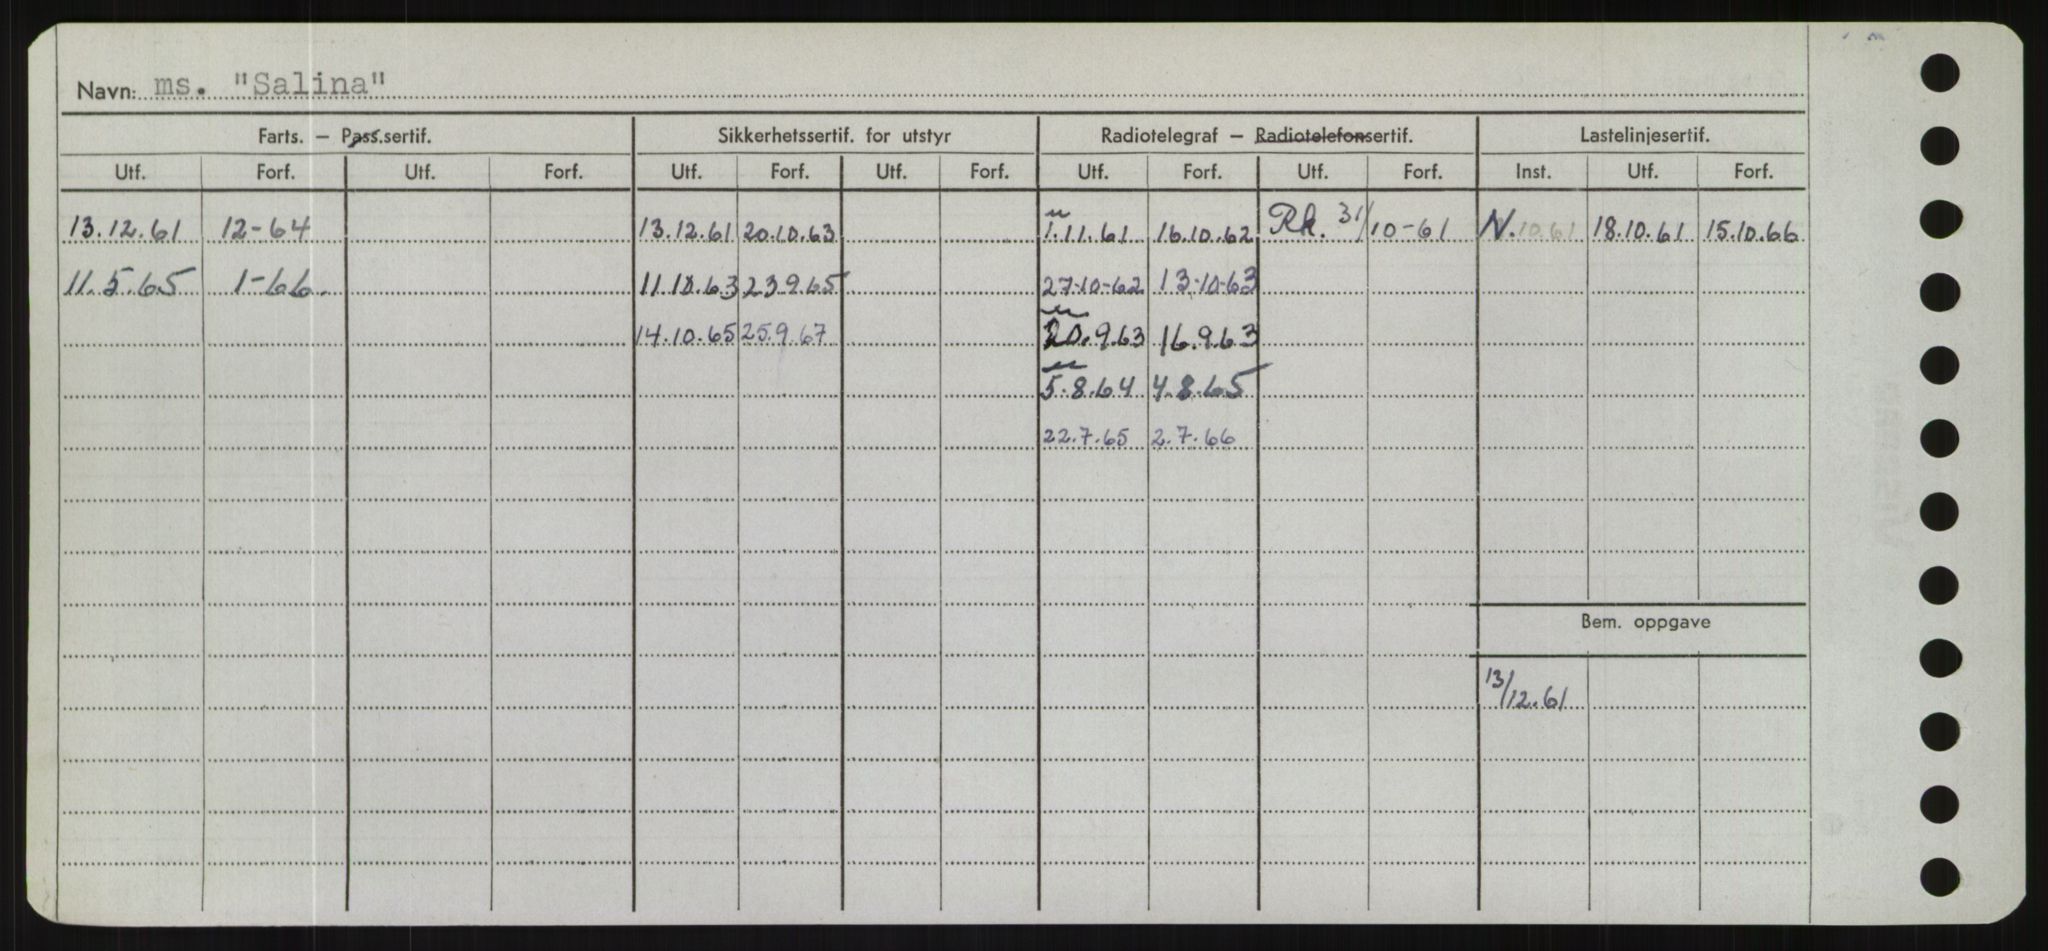 Navn: ms. "Salina"
Farts. — Pass.sertif. Sikkerhetssertif. for utstyr Radiotelegraf — Radiotelefonsertif. Lastelinjesertif.
Utf. Forf. Utf. Forf. Utf. Forf. Utf. Forf. Utf. Forf. Utf. Forf. Inst. Utf. Forf.
13.12.61 12-64 13.12.61 20.10.63 1.11.61 16.10.62 Rk. 31/10-61 N.10.61 18.10.61 15.10.66
11.5.65 1-66. 11.10.63 23.9.65 27-10-62 13-10-63
14.10.65 25.9.67 20.9.63 16.9.63
5.8.64 4.8.65
22.7.65 2.7.66
Bem. oppgave
13/12.61